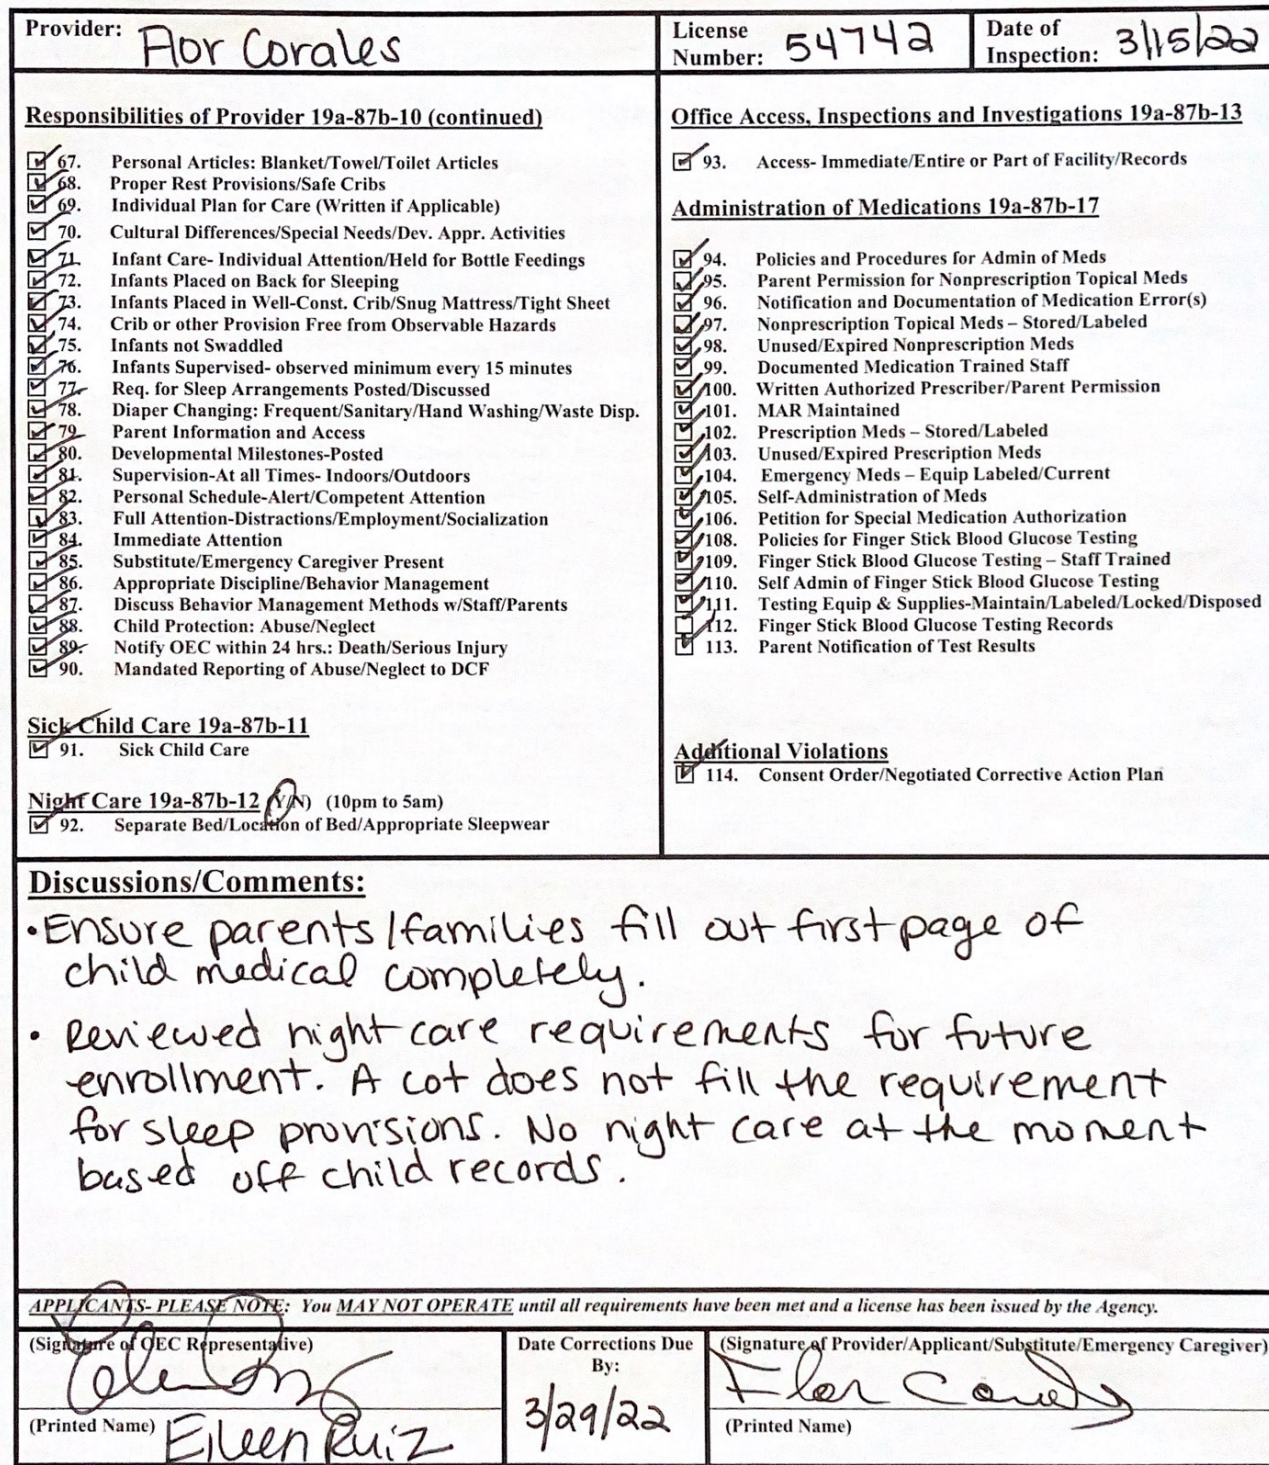 Provider: Flor Corales
License Number: 54742
Date of Inspection: 3/15/22
Responsibilities of Provider 19a-87b-10 (continued)
67. Personal Articles: Blanket/Towel/Toilet Articles
68. Proper Rest Provisions/Safe Cribs
69. Individual Plan for Care (Written if Applicable)
70. Cultural Differences/Special Needs/Dev. Appr. Activities
71. Infant Care- Individual Attention/Held for Bottle Feedings
72. Infants Placed on Back for Sleeping
73. Infants Placed in Well-Const. Crib/Snug Mattress/Tight Sheet
74. Crib or other Provision Free from Observable Hazards
75. Infants not Swaddled
76. Infants Supervised- observed minimum every 15 minutes
77. Req. for Sleep Arrangements Posted/Discussed
78. Diaper Changing: Frequent/Sanitary/Hand Washing/Waste Disp.
79. Parent Information and Access
80. Developmental Milestones-Posted
81. Supervision-At all Times- Indoors/Outdoors
82. Personal Schedule-Alert/Competent Attention
83. Full Attention-Distractions/Employment/Socialization
84. Immediate Attention
85. Substitute/Emergency Caregiver Present
86. Appropriate Discipline/Behavior Management
87. Discuss Behavior Management Methods w/Staff/Parents
88. Child Protection: Abuse/Neglect
89. Notify OEC within 24 hrs.: Death/Serious Injury
90. Mandated Reporting of Abuse/Neglect to DCF
Sick Child Care 19a-87b-11
91. Sick Child Care
Night Care 19a-87b-12 (Y/N) (10pm to 5am)
92. Separate Bed/Location of Bed/Appropriate Sleepwear
Office Access, Inspections and Investigations 19a-87b-13
93. Access- Immediate/Entire or Part of Facility/Records
Administration of Medications 19a-87b-17
94. Policies and Procedures for Admin of Meds
95. Parent Permission for Nonprescription Topical Meds
96. Notification and Documentation of Medication Error(s)
97. Nonprescription Topical Meds – Stored/Labeled
98. Unused/Expired Nonprescription Meds
99. Documented Medication Trained Staff
100. Written Authorized Prescriber/Parent Permission
101. MAR Maintained
102. Prescription Meds – Stored/Labeled
103. Unused/Expired Prescription Meds
104. Emergency Meds – Equip Labeled/Current
105. Self-Administration of Meds
106. Petition for Special Medication Authorization
108. Policies for Finger Stick Blood Glucose Testing
109. Finger Stick Blood Glucose Testing – Staff Trained
110. Self Admin of Finger Stick Blood Glucose Testing
111. Testing Equip & Supplies-Maintain/Labeled/Locked/Disposed
112. Finger Stick Blood Glucose Testing Records
113. Parent Notification of Test Results
Additional Violations
114. Consent Order/Negotiated Corrective Action Plan
Discussions/Comments:
• Ensure parents/families fill out first page of
child medical completely.
• Reviewed night care requirements for future
enrollment. A cot does not fill the requirement
for sleep provisions. No night care at the moment
based off child records.
APPLICANTS- PLEASE NOTE: You MAY NOT OPERATE until all requirements have been met and a license has been issued by the Agency.
(Signature of OEC Representative)
(Printed Name) Eileen Ruiz
Date Corrections Due
By:
3/29/22
(Signature of Provider/Applicant/Substitute/Emergency Caregiver)
(Printed Name)